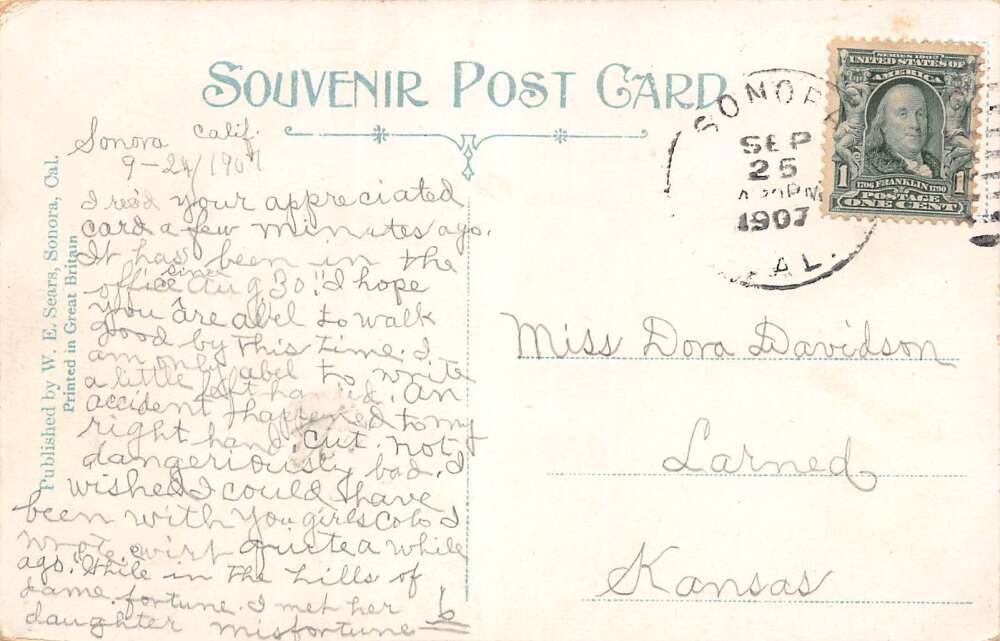 SOUVENIR POST CARD
Published by W. E. Sears, Sonora, Cal.
Printed in Great Britain
Sonora Calif.
9-24/1907
I rec'd your appreciated
card a few minutes ago.
It has been in the
office since Aug 30! I hope
you are abel to walk
good by this time. I
am only abel to write
a little left handed. An
accident happened to my
right hand, cut. not
dangeriously bad. I
wished I could have
been with you girls Colo I
wrote quite a while
ago. While in the hills of
dame fortune. I met her
daughter misfortune
6
SONORA
SEP
25
PM
1907
CAL.
SERIES 1902
UNITED STATES OF
AMERICA
1706 FRANKLIN 1790
1 POSTAGE 1
ONE CENT
Miss Dora Davidson
Larned
Kansas